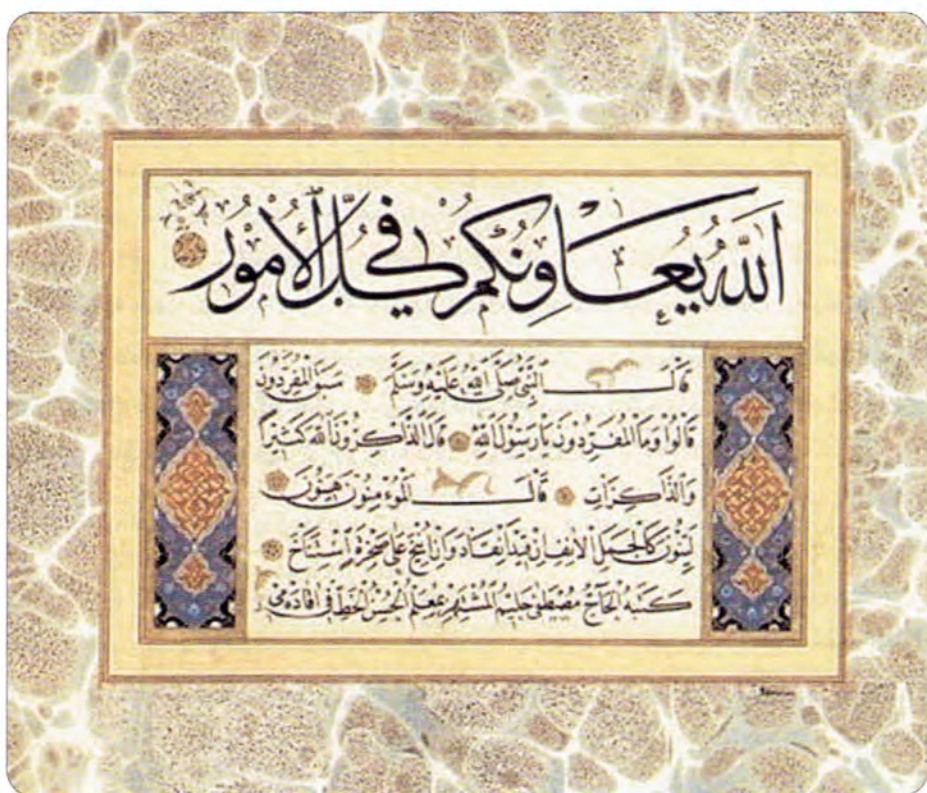 اَللّٰهُ يُعَاوِنُكُمْ فِي كُلِّ الْأُمُورِ
قَالَ النَّبِيُّ صَلَّى اللّٰهُ عَلَيْهِ وَسَلَّمَ سَبَقَ الْمُفَرِّدُونَ
قَالُوا وَمَا الْمُفَرِّدُونَ يَا رَسُولَ اللّٰهِ قَالَ الذَّاكِرُونَ اللّٰهَ كَثِيرًا
وَالذَّاكِرَاتِ قَالَ الْمُؤْمِنُونَ هَيِّنُونَ
لَيِّنُونَ كَالْجَمَلِ الْأَنِفِ اِنْ قِيدَ انْقَادَ وَاِنْ اُنِيخَ عَلَى صَخْرَةٍ اسْتَنَاخَ
كَتَبَهُ الْحَاجُّ مُصْطَفٰى حَلِيمُ الْمُشْتَهِرُ بِمُعَلِّمِ الْحُسْنِ الْخَطِّ فِي